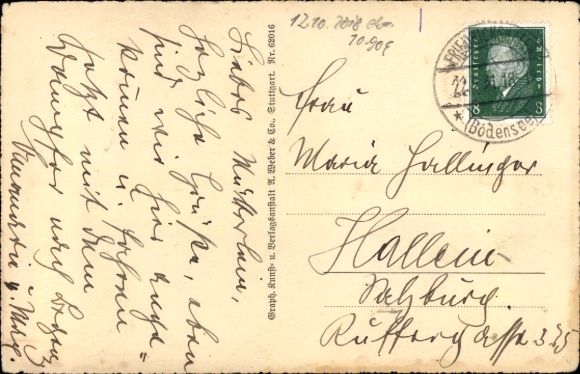 Liebes Mütterlein,
Herzliche Grüße, eben
sind wir hier ange=
kommen u. fahren
jetzt mit dem
Dampfer nach
Graph. Kunst- u. Verlagsanstalt A. Weber & Co., Stuttgart. Nr. 62016
12.10.
FRIEDRICHSHAFEN
(Bodensee)
Deutsches Reich
8 8
Frau
Maria Hallinger
Hallein
Salzburg.
Ruffergasse 325